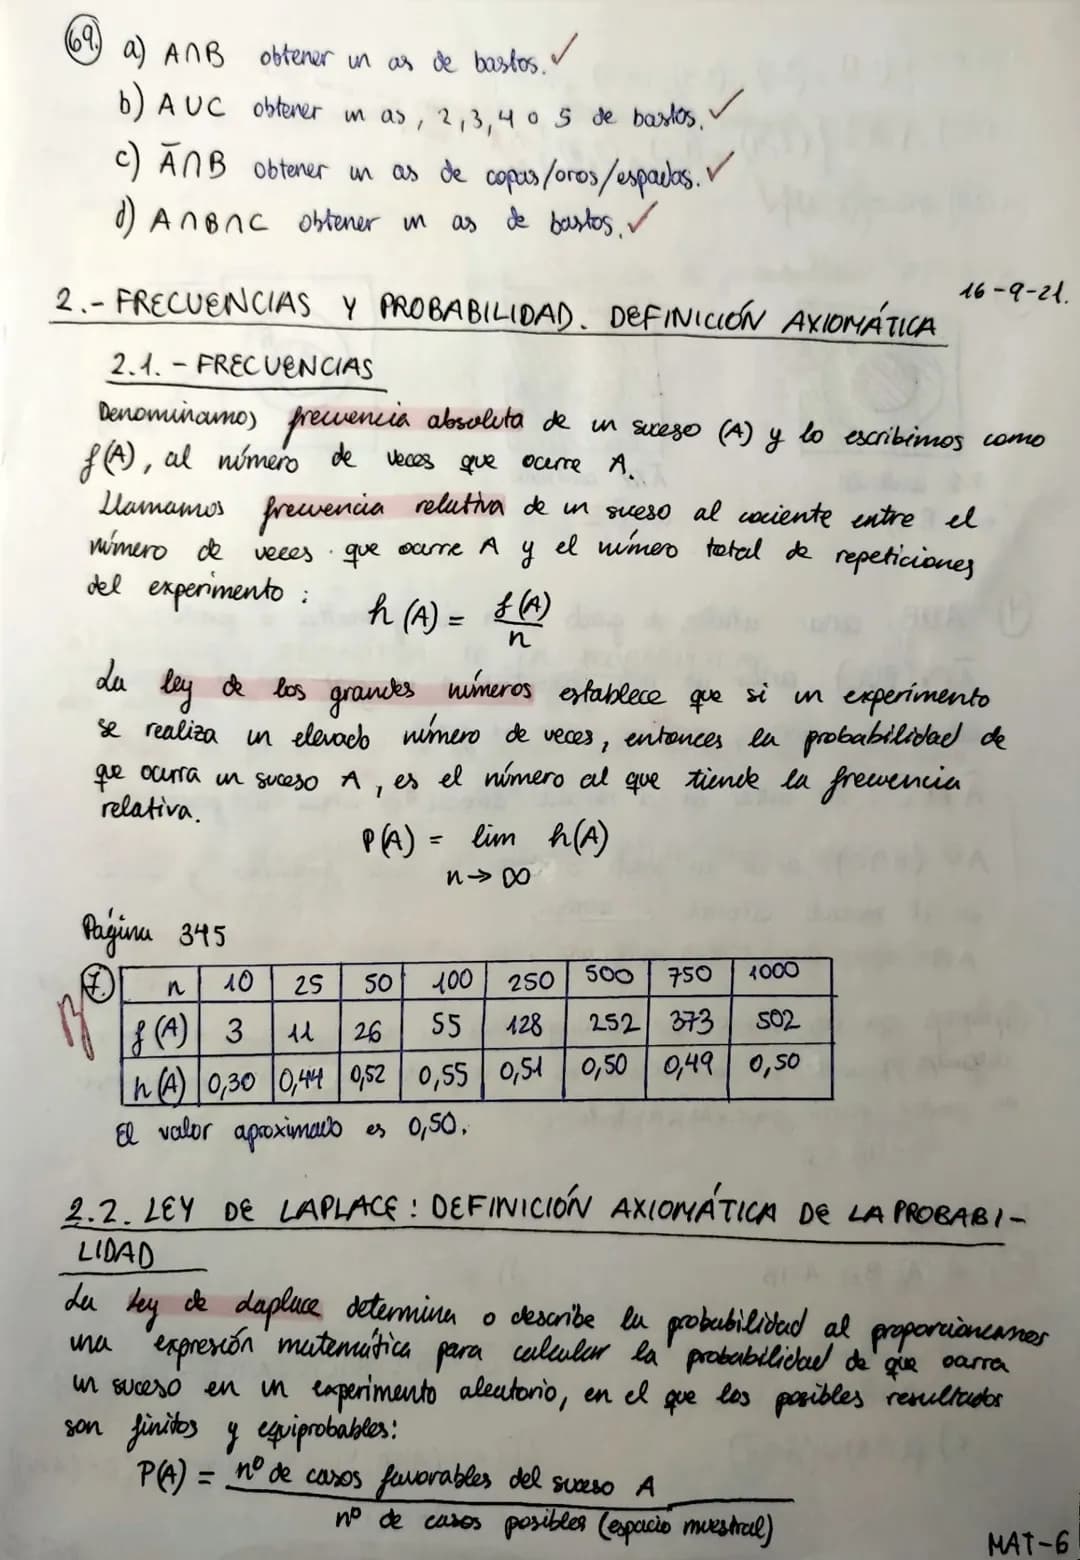 69. a) A∩B obtener un as de bastos. ✓
b) A∪C obtener un as, 2, 3, 4 o 5 de bastos. ✓
c) Ā∩B obtener un as de copas/oros/espadas. ✓
d) A∩B∩C obtener un as de bastos. ✓
16-9-21.
2.- FRECUENCIAS Y PROBABILIDAD. DEFINICIÓN AXIOMÁTICA
2.1. - FRECUENCIAS
Denominamos frecuencia absoluta de un suceso (A) y lo escribimos como
f(A), al número de veces que ocurre A.
Llamamos frecuencia relativa de un suceso al cociente entre el
número de veces que ocurre A y el número total de repeticiones
del experimento:
h(A) = f(A)
n
La ley de los grandes números establece que si un experimento
se realiza un elevado número de veces, entonces la probabilidad de
que ocurra un suceso A, es el número al que tiende la frecuencia
relativa.
P(A) = lim h(A)
n→∞
Página 345
7. n 10 25 50 100 250 500 750 1000
f(A) 3 11 26 55 128 252 373 502
h(A) 0,30 0,44 0,52 0,55 0,51 0,50 0,49 0,50
El valor aproximado es 0,50.
2.2. LEY DE LAPLACE: DEFINICIÓN AXIOMÁTICA DE LA PROBABI-
LIDAD
La Ley de Laplace determina o describe la probabilidad al proporcionarnos
una expresión matemática para calcular la probabilidad de que ocurra
un suceso en un experimento aleatorio, en el que los posibles resultados
son finitos y equiprobables:
P(A) = nº de casos favorables del suceso A
nº de casos posibles (espacio muestral)
MAT-6